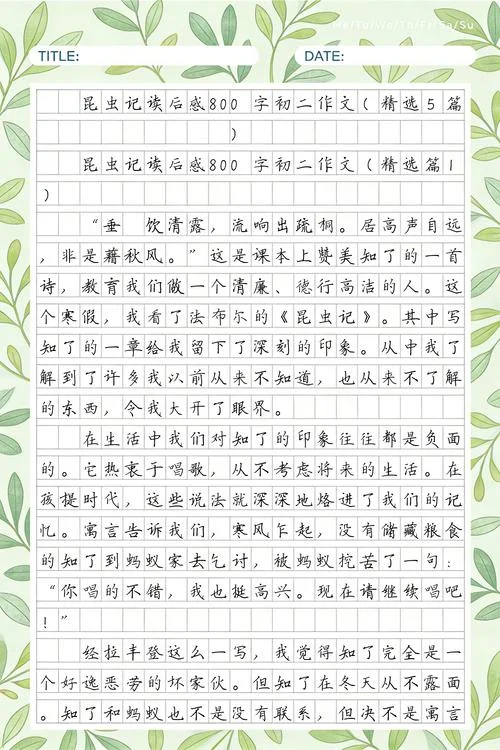 Mo/Tu/We/Th/Fr/Sa/Su
TITLE: DATE:
昆虫记读后感800 字初二作文(精选5篇
)
昆虫记读后感800 字初二作文(精选篇1
)
“垂 饮清露，流响出疏桐。居高声自远
，非是藉秋风。”这是课本上赞美知了的一首
诗，教育我们做一个清廉、德行高洁的人。这
个寒假，我看了法布尔的《昆虫记》。其中写
知了的一章给我留下了深刻的印象。从中我了
解到了许多我以前从来不知道，也从来不了解
的东西，令我大开了眼界。
在生活中我们对知了的印象往往都是负面
的。它热衷于唱歌，从不考虑将来的生活。在
孩提时代，这些说法就深深地烙进了我们的记
忆。寓言告诉我们，寒风乍起，没有储藏粮食
的知了到蚂蚁家去乞讨，被蚂蚁挖苦了一句：
“你唱的不错，我也挺高兴。现在请继续唱吧
！”
经拉丰登这么一写，我觉得知了完全是一
个好逸恶劳的坏家伙。但知了在冬天从不露面
。知了和蚂蚁也不是没有联系，但决不是寓言